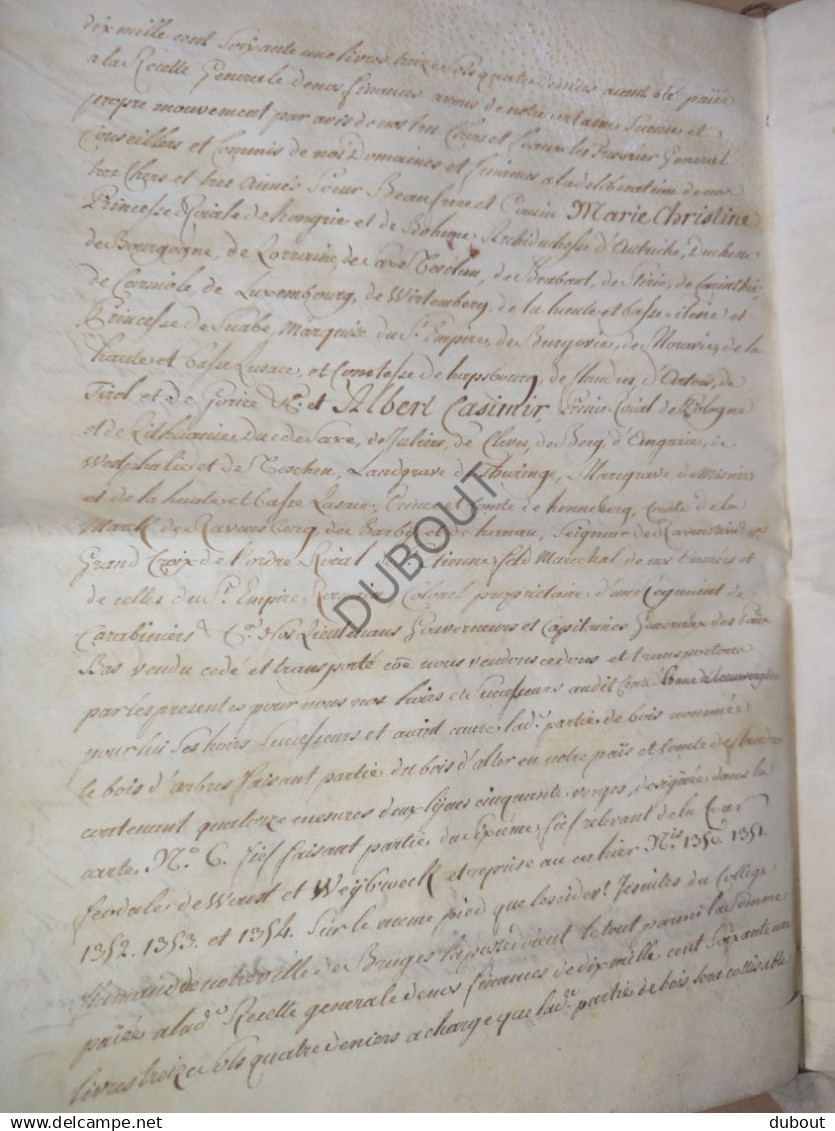 dix mille cent soixante une livres treize sols quatre deniers aiant été paiée
a la Recette Generale de nos finances avons de notre certaine Science et
propre mouvement par avis de nos tres Chers et feaux les Tresorier General
Conseillers et Commis de nos Domaines et finances a la deliberation de nos
tres Chers et tres aimés Soeur Beaufrere et Cousin Marie Christine
Princesse Roiale de hongrie et de Bohéme, Archiduchesse d'Autriche, Duchesse
de Bourgogne, de Lorraine, de Saxe Teschen, de Brabant, de Stirie, de Carinthie,
de Carniole, de Luxembourg, de Wirtemberg, de la haute et basse silesie et
Princesse de Suabe, Marquise du St. Empire, de Burgovie, de Moravie, de la
haute et basse Lusace, et Comtesse de hapsbourg, de flandres, d'Artois, de
Tirol et de Gorice &c. et Albert Casimir, Prince Roial de Pologne
et de Lithuanie, Duc de Saxe, de Juliers, de Cleves, de Berg, d'Angarie, de
Westphalie et de Teschen, Landgrave de Thuringe, Marcgrave de Misnie
et de la haute et basse Lusace, Prince et Comte de henneberg, Comte de la
Marck de Ravensberg, de Barby et de hanau, Seigneur de Ravenstein
Grand Croix de l'ordre Roial de St. Etienne, feld Marechal de nos Armées et
de celles du St. Empire Romain, Colonel proprietaire d'une Regiment de
Carabiniers &Ca. Nos Lieutenans Gouverneurs et Capitaines Generaux des Païs
Bas vendu cedé et transporté coe nous vendons cedons et transportons
par les presentes pour nous nos hoirs et Successeurs audit
pour lui ses hoirs Successeurs et aiant cause, lade. partie de bois nommée
le bois d'arbres faisant partie du bois d'alter en notre païs et Comté de flandres
contenant quatorze mesures deux lignes cinquante verges, designée dans la
carte N.o 6. fief faisant partie du sixiéme fief relevant de la Cour
feodale de Woust et Weÿbweck et reprise au cashier N.is 1350. 1351.
1352. 1353. et 1354. Sur le meme pied que les cidevt. Jesuites du College
flamand de notre ville de Bruges la possedoient le tout parmi la Somme
païée a lad.e Recette generale de nos finances de dix mille cent soixante une
livres treize sols quatre deniers a charge que lad.e partie de bois sera cottisable
DUBOUT
dubout